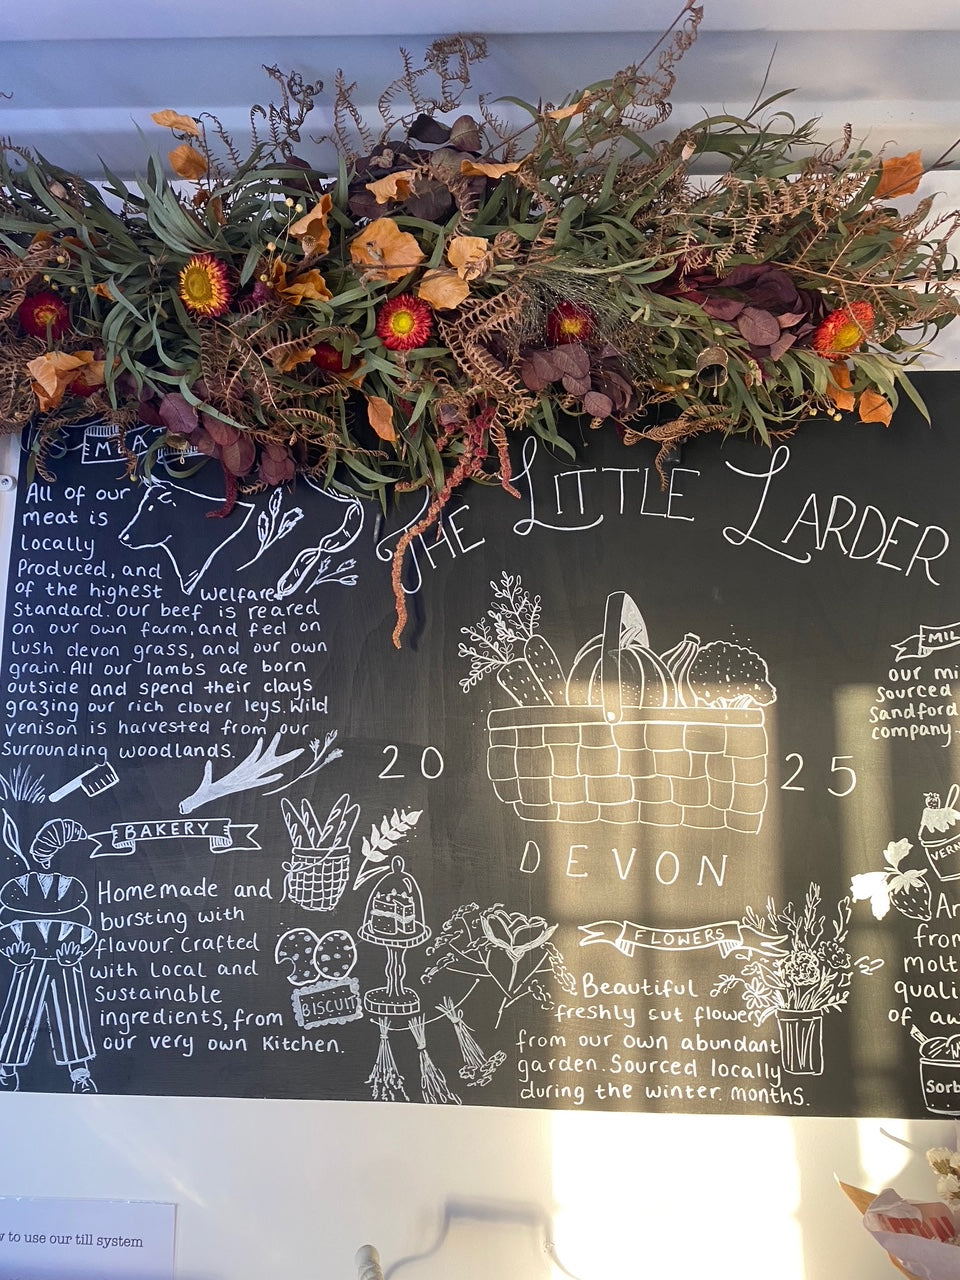 MEA
All of our
meat is
locally
Produced, and
of the highest welfare
standard. Our beef is reared
on our own farm, and fed on
lush devon grass, and our own
grain. All our lambs are born
outside and spend their days
grazing our rich clover leys. Wild
venison is harvested from our
surrounding woodlands.
BAKERY
Homemade and
bursting with
flavour. Crafted
with local and
Sustainable
ingredients, from
our very own Kitchen.
BISCUIT
THE LITTLE LARDER
20 25
DEVON
FLOWERS
Beautiful
freshly cut flowers
from our own abundant
garden. Sourced locally
during the winter months.
MIL
our mi
Sourced
Sandford
company.
VERN
Ar
from
Molt
quali
of aw
Sorb
w to use our till system